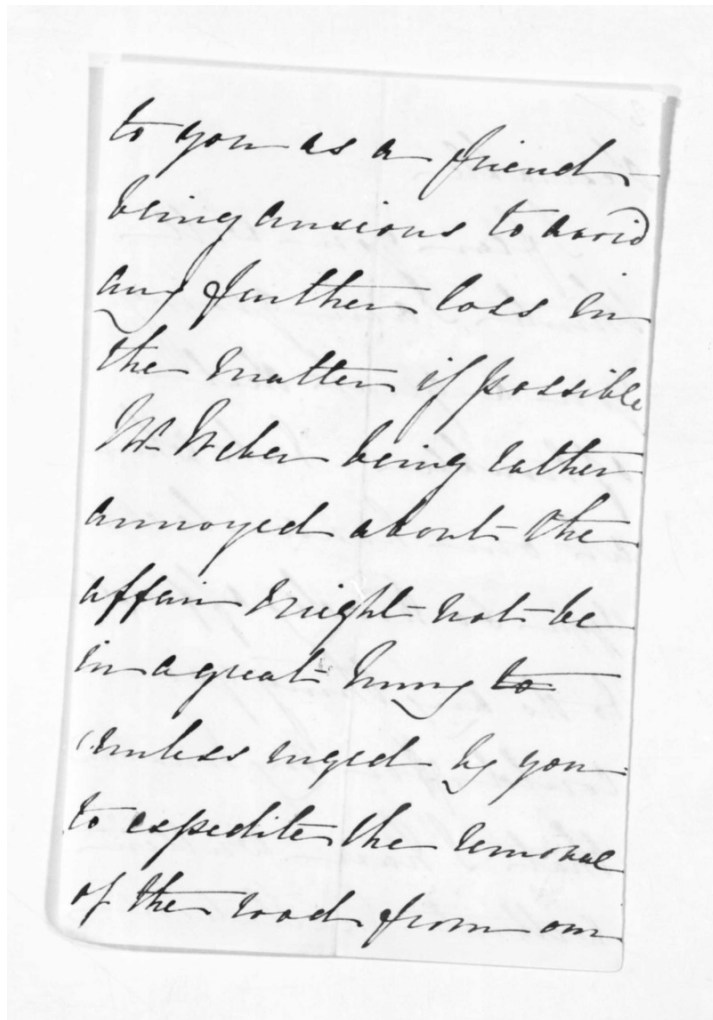 to you as a friend
being anxious to avoid
any further loss in
the matter if possible
Mr Weber being rather
annoyed about the
affair might not be
in a great hurry to
(unless urged by you
to expedite the removal
of the road from our